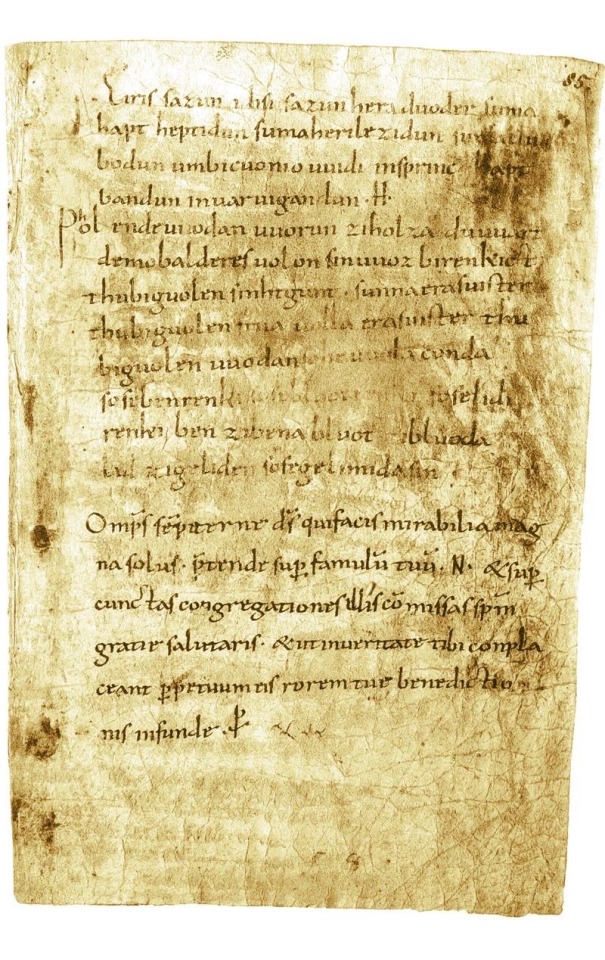 85
Eiris sazun idisi sazun hera duoder suma
hapt heptidun sumaherilezidun sumaclu
bodun umbicuonio uuidi insprinc hapt
bandun inuar uigandun ·H·
Phol endeuuodan uuorun ziholza duuuart
demobalderes uolon sinuuoz birenkict
thubiguolen sinhtgunt · sunnaerasuister
thubiguolen friia uolla erasuister thu
biguolen uuodan sohe uuolaconda
sosebenrenki sosebluotrenki soselidi
renki ben zibena bluot zibluoda
lid zigeliden sosegelimidasin
Omp̄s sēpiterne d̄s quifacis mirabilia mag
na solus · p̄tende sup̱ famulū tuū · N · &sup̱
cunctas congregationes illis cōmissas sp̄m
gratie salutaris · &utinueritate tibi conpla
ceant ꝑpetuum eis rorem tue benedictio
nis infunde · ꝑ